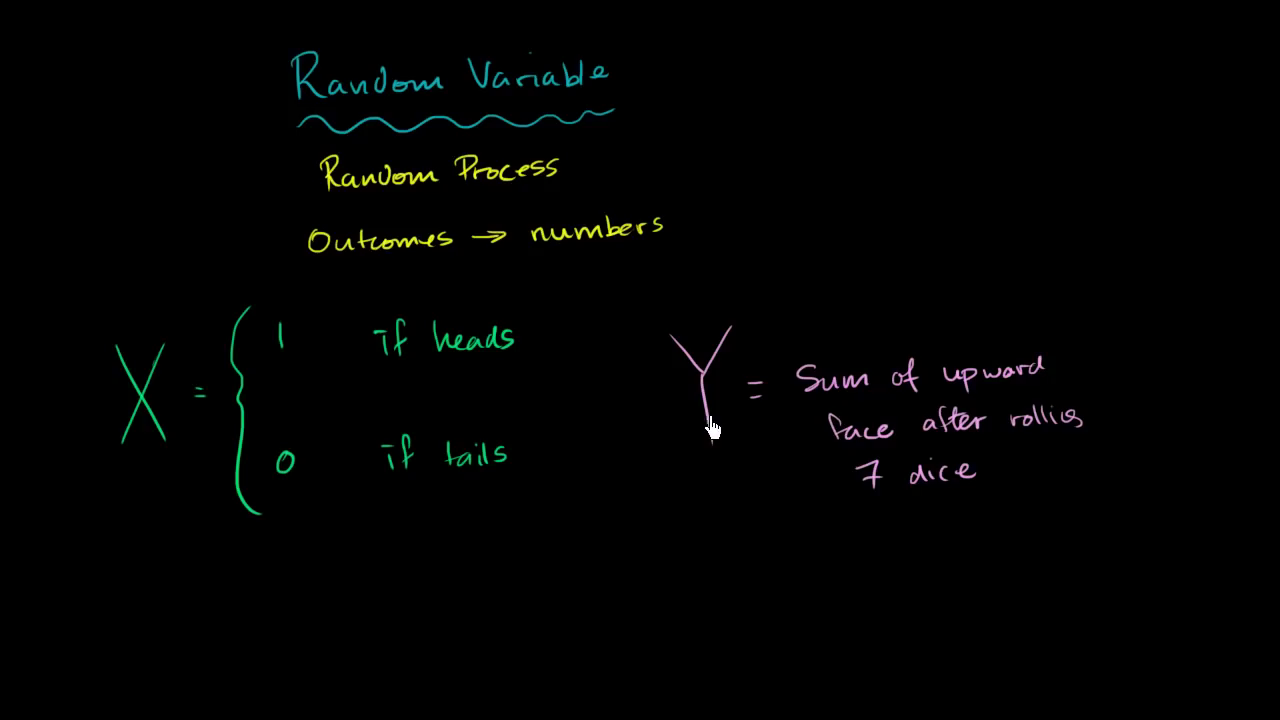 Random Variable
Random Process
Outcomes → numbers
X = { 1 if heads
0 if tails
Y = Sum of upward
face after rolling
7 dice